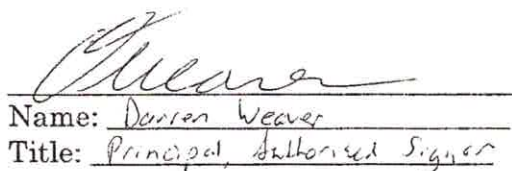 Weaver
Name: Darren Weaver
Title: Principal, Authorised Signor